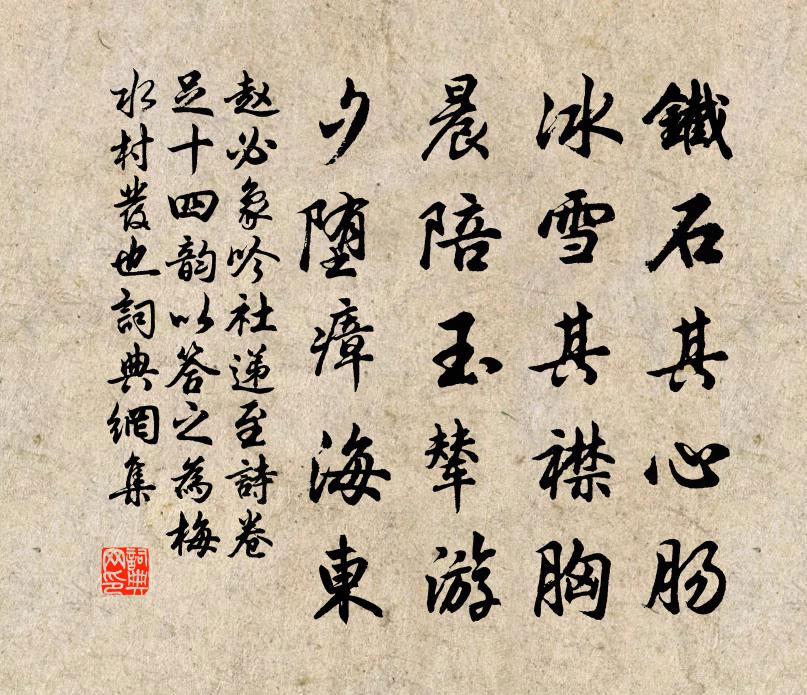 鐵石其心肠
冰雪其襟胸
晨陪玉輦游
夕堕瘴海東
赵必象吟社递至詩卷
足十四韵以答之為梅
水村發也詞典網集
詞典网印